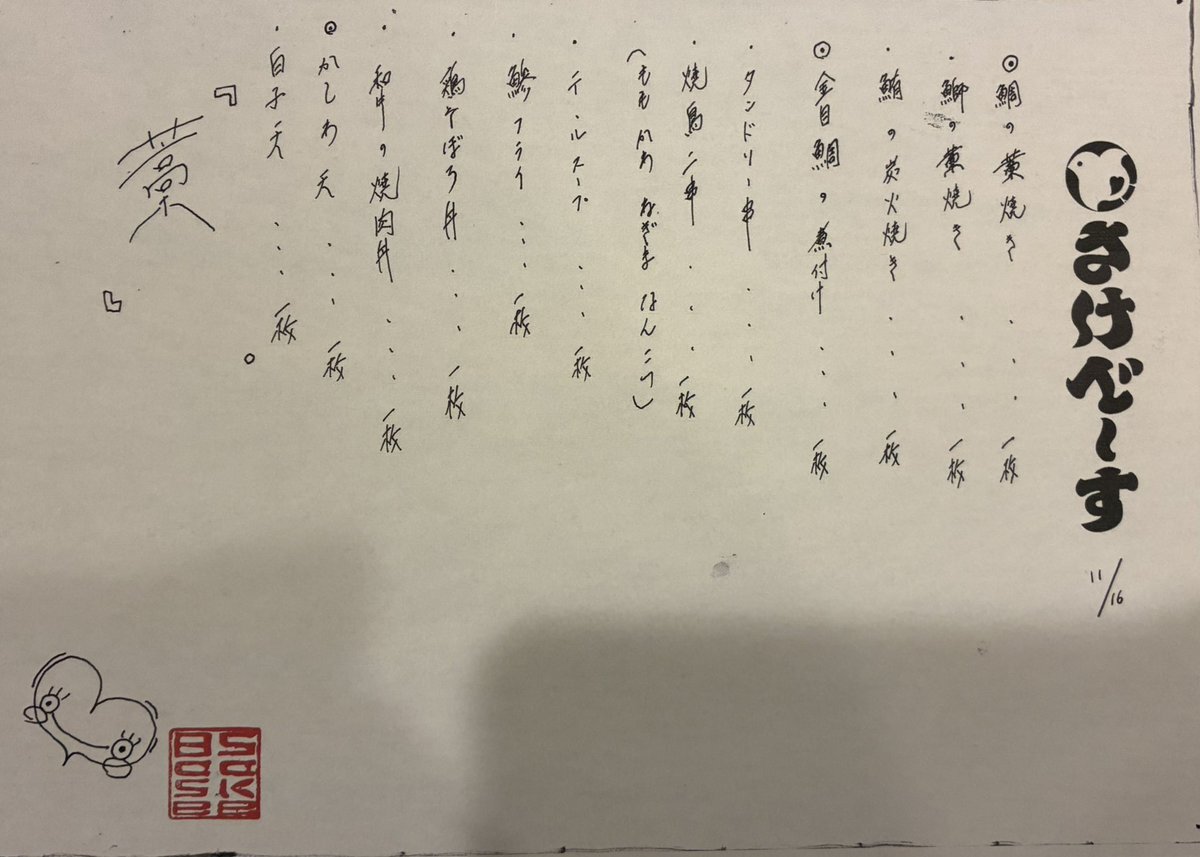 さけべーす
11/16
◎鯛の藁焼き・・・一枚
・鰤の藁焼き・・・一枚
・鮪の炭火焼き・・・一枚
◎金目鯛の煮付け・・・一枚
・タンドリー串・・・一枚
・焼鳥二串・・・一枚
(ももかわねぎまなんこつ)
・テールスープ・・・一枚
・鯵フライ・・・一枚
・鶏そぼろ丼・・・一枚
・和牛の焼肉丼・・・一枚
◎かしわ天・・・一枚
・白子天・・・一枚。
『藁』
Sake
Base